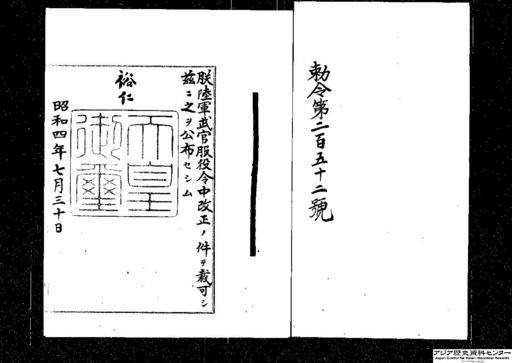 勅令第二百五十二號
朕陸軍武官服役令中改正ノ件ヲ裁可シ
茲ニ之ヲ公布セシム
裕仁
天皇
御璽
昭和四年七月三十日
アジア歴史資料センター
Japan Center for Asian Historical Records